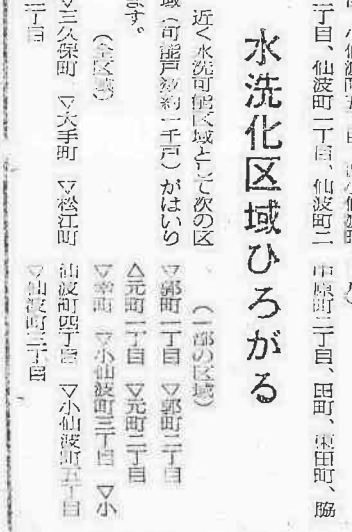 丁目、仙波町一丁目、仙波町二
中原町二丁目、田町、東田町、脇
水洗化区域ひろがる
近く水洗可能区域として次の区
域（可能戸数約一千戸）がはいり
ます。
（全区域）
▽三久保町　▽大手町　▽松江町
二丁目
（一部の区域）
▽郭町一丁目　▽郭町二丁目
△元町一丁目　▽元町二丁目
▽幸町　▽小仙波町三丁目　▽小
仙波町四丁目　▽小仙波町五丁目
▽仙波町二丁目